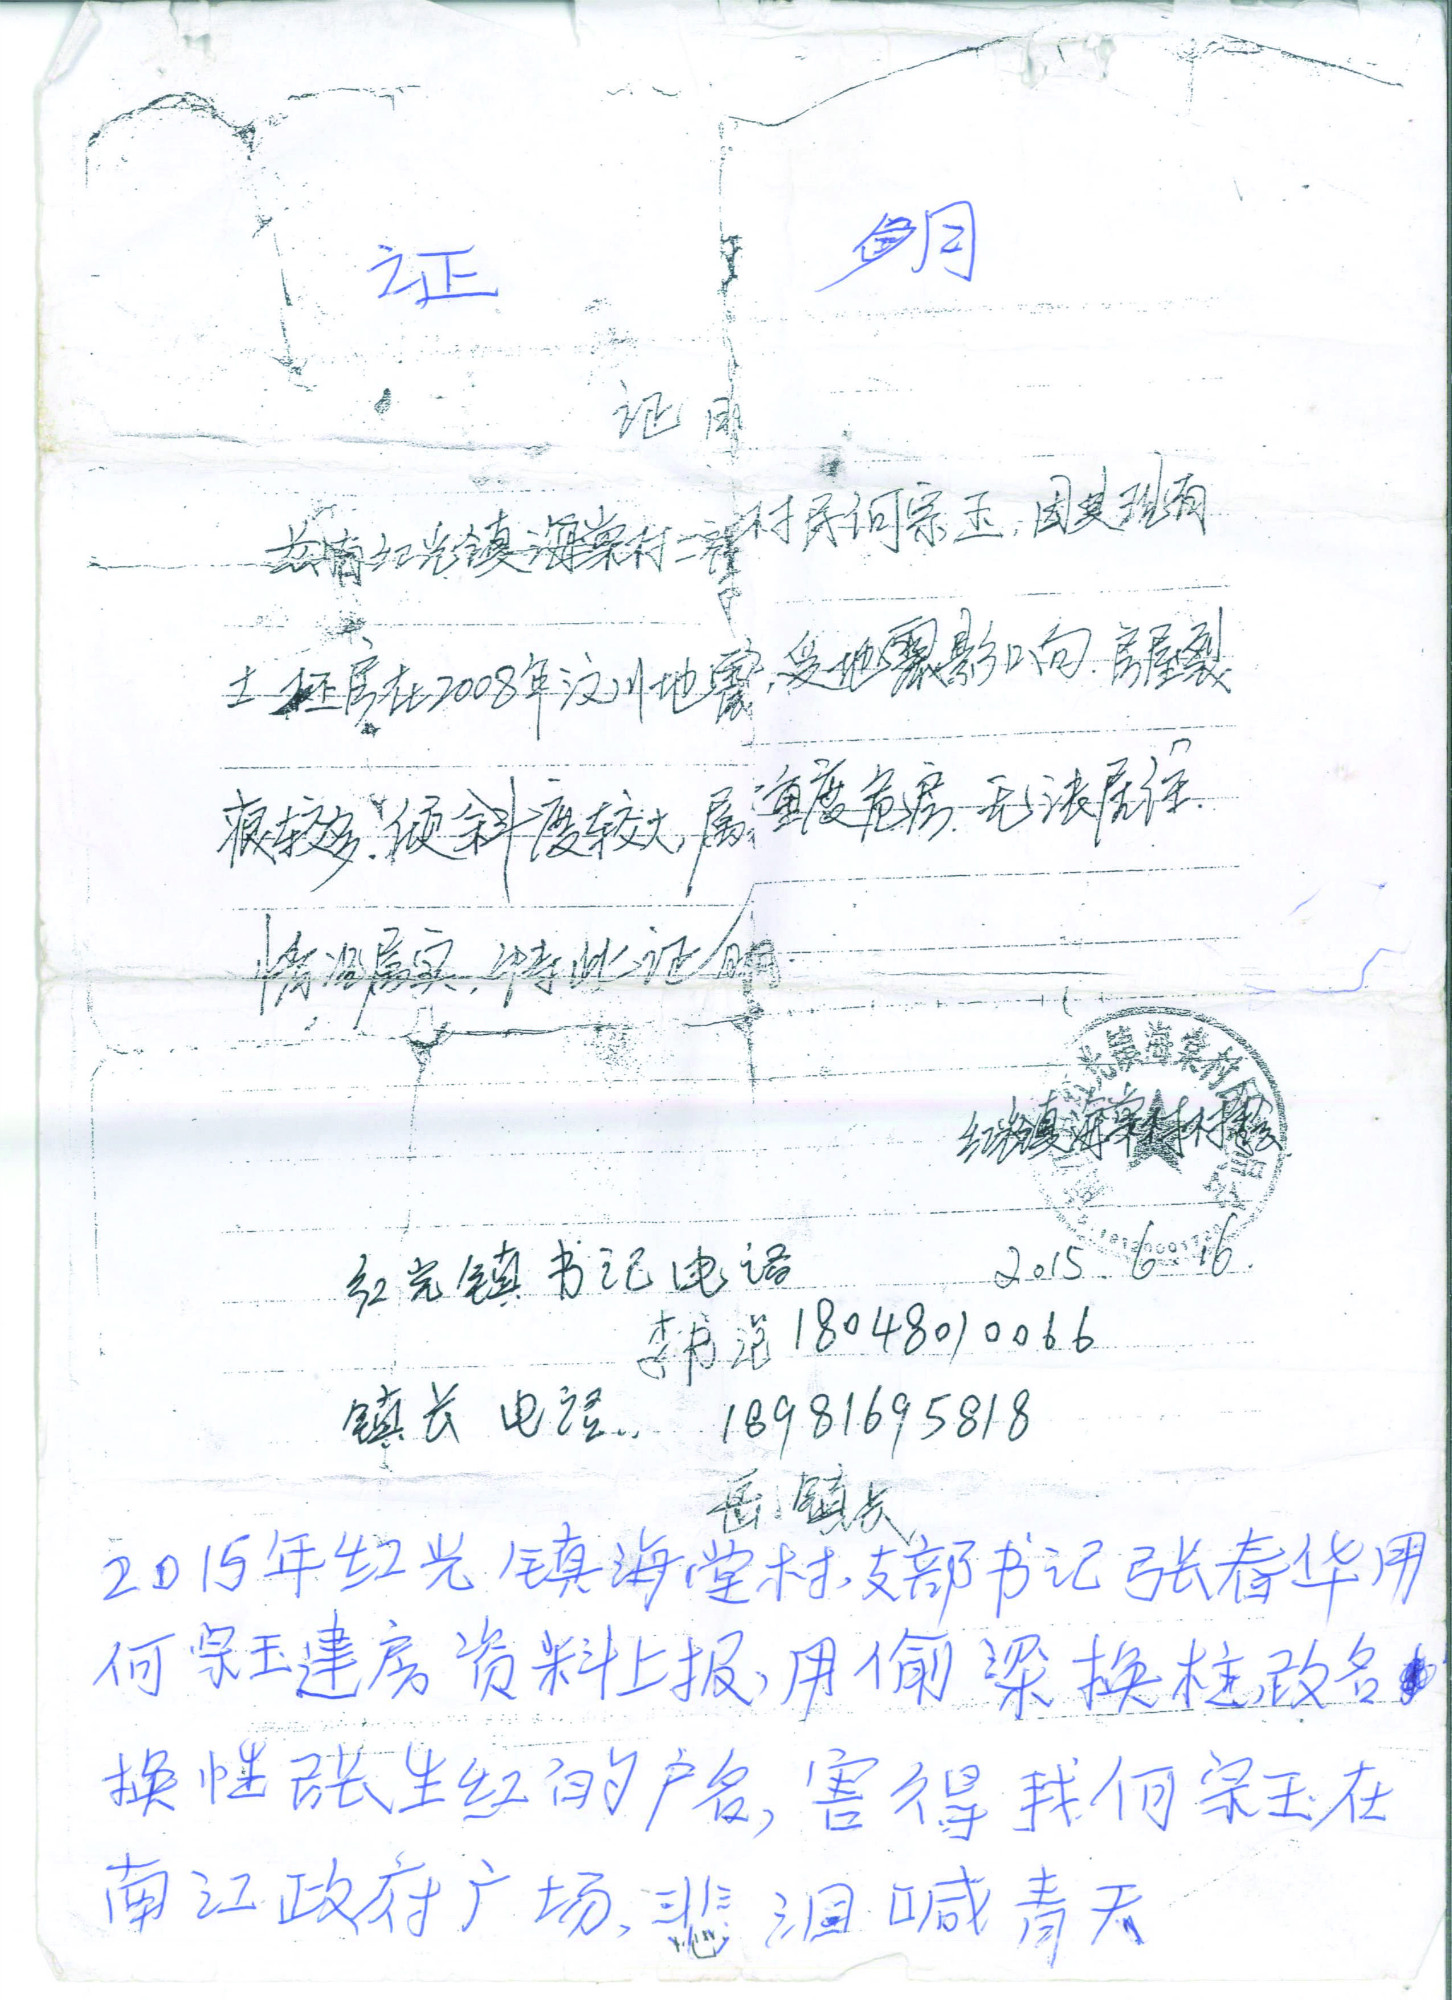 证 明
证 明
兹有红光镇海棠村二社村民何宗玉，因其现有
土坯房在2008年汶川地震，受地震影响，房屋裂
痕较多，倾斜度较大，属重度危房，无法居住，
情况属实，特此证明
光镇海棠村
红光镇海棠村村委会
2015.6.16.
红光镇书记电话
李书记 18048010066
镇长电话.. 18981695818
岳镇长
2015年红光镇海堂村、支部书记张春华用
何宗玉建房资料上报，用偷梁换柱，改名
换性张生红的户名，害得我何宗玉在
南江政府广场、悲泪喊青天